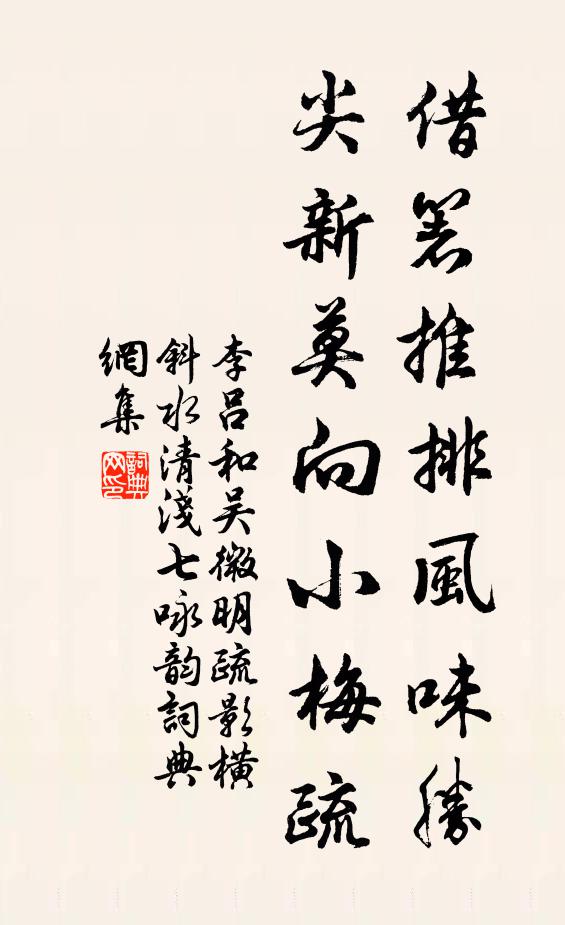 借箸推排風味勝
尖新莫向小梅疏
李呂和吴微明疏影横
斜水清淺七咏韵詞典
網集
詞典
网印